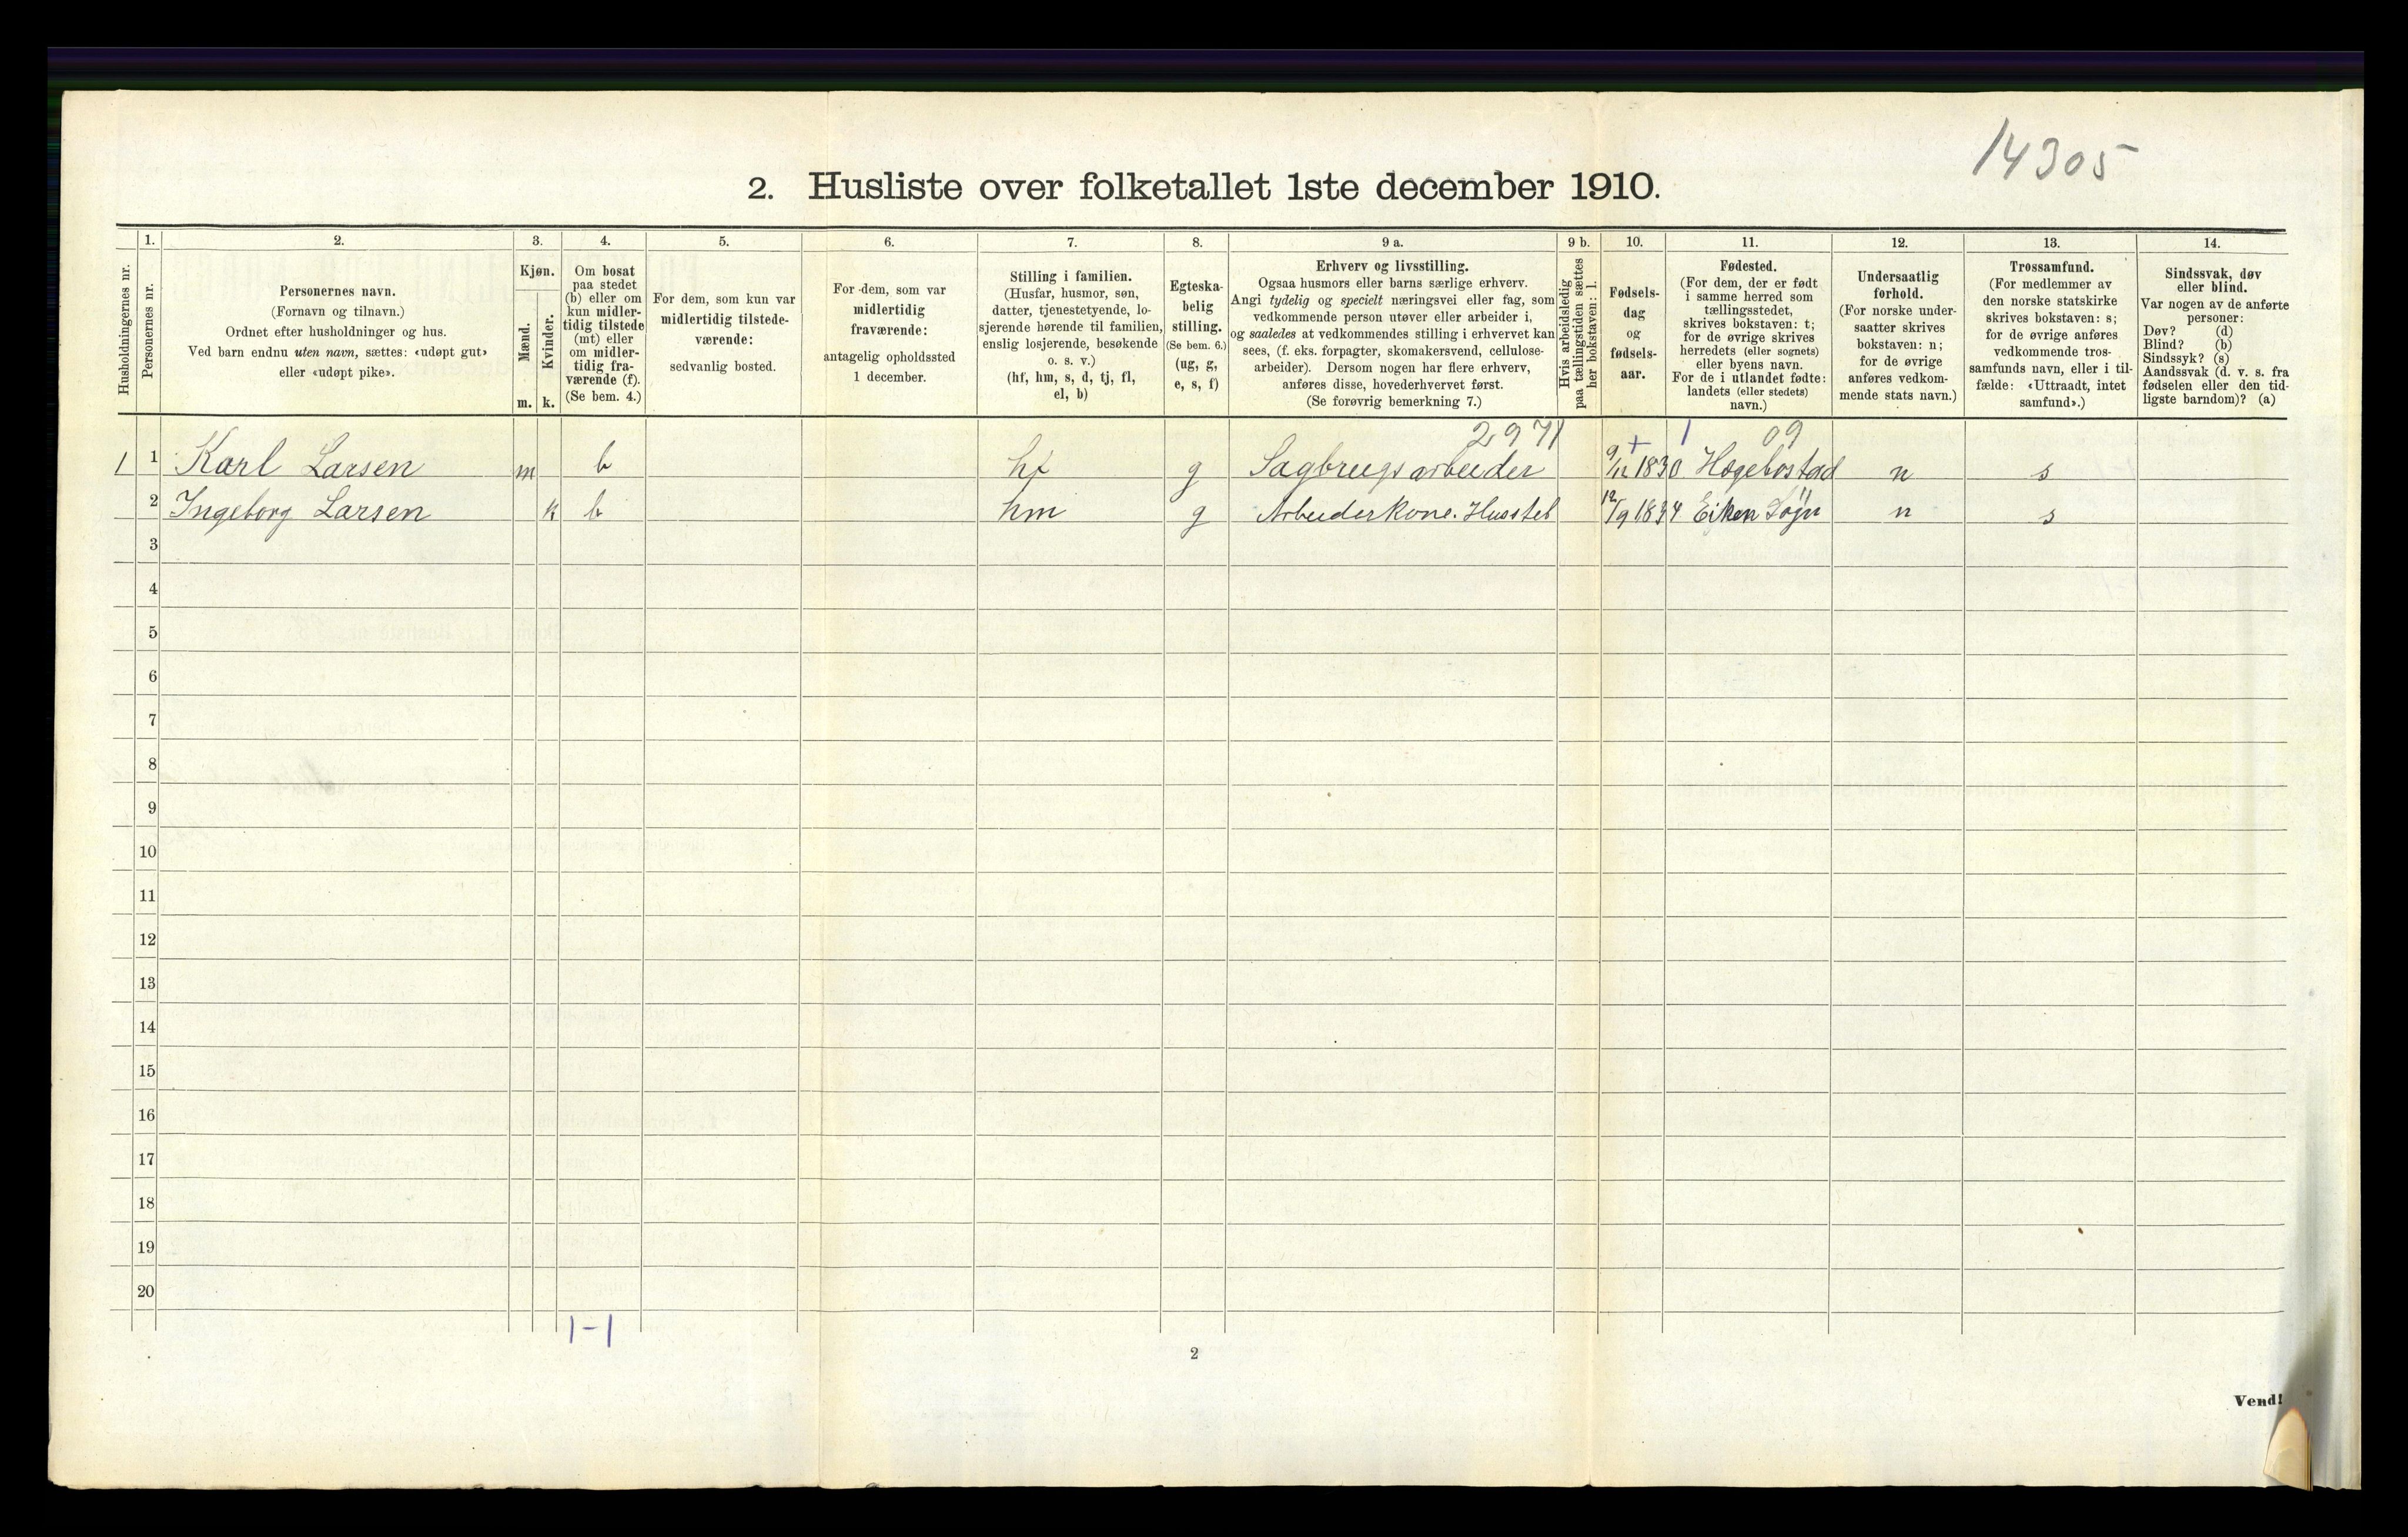 14305
2. Husliste over folketallet 1ste december 1910.
Husholdningernes nr.
1.
Personernes nr.
2.
Personernes navn.
(Fornavn og tilnavn.)
Ordnet efter husholdninger og hus.
Ved barn endnu uten navn, sættes: «udøpt gut»
eller «udøpt pike».
3.
Kjøn.
Mænd.
Kvinder.
m. k.
4.
Om bosat
paa stedet
(b) eller om
kun midler-
tidig tilstede
(mt) eller
om midler-
tidig fra-
værende (f).
(Se bem. 4.)
5.
For dem, som kun var
midlertidig tilstede-
værende:
sedvanlig bosted.
6.
For dem, som var
midlertidig
fraværende:
antagelig opholdssted
1 december.
7.
Stilling i familien.
(Husfar, husmor, søn,
datter, tjenestetyende, lo-
sjerende hørende til familien,
enslig losjerende, besøkende
o. s. v.)
(hf, hm, s, d, tj, fl,
el, b)
8.
Egteska-
belig
stilling.
(Se bem. 6.)
(ug, g,
e, s, f)
9 a.
Erhverv og livsstilling.
Ogsaa husmors eller barns særlige erhverv.
Angi tydelig og specielt næringsvei eller fag, som
vedkommende person utøver eller arbeider i,
og saaledes at vedkommendes stilling i erhvervet kan
sees, (f. eks. forpagter, skomakersvend, cellulose-
arbeider). Dersom nogen har flere erhverv,
anføres disse, hovederhvervet først.
(Se forøvrig bemerkning 7.)
9 b.
Hvis arbeidsledig
paa tællingstiden sættes
her bokstaven: l.
10.
Fødsels-
dag
og
fødsels-
aar.
11.
Fødested.
(For dem, der er født
i samme herred som
tællingsstedet,
skrives bokstaven: t;
for de øvrige skrives
herredets (eller sognets)
eller byens navn.
For de i utlandet fødte:
landets (eller stedets)
navn.)
12.
Undersaatlig
forhold.
(For norske under-
saatter skrives
bokstaven: n;
for de øvrige
anføres vedkom-
mende stats navn.)
13.
Trossamfund.
(For medlemmer av
den norske statskirke
skrives bokstaven: s;
for de øvrige anføres
vedkommende tros-
samfunds navn, eller i til-
fælde: «Uttraadt, intet
samfund».)
14.
Sindssvak, døv
eller blind.
Var nogen av de anførte
personer:
Døv? (d)
Blind? (b)
Sindssyk? (s)
Aandssvak (d. v. s. fra
fødselen eller den tid-
ligste barndom)? (a)
2971 + 1 09
1 1 Karl Larsen m b hf g Sagbrugsarbeider 9/12 1830 Hægebostad n s
2 Ingeborg Larsen k b hm g Arbeiderkone. Husstel 12/9 1834 Eiken Sogn n s
3
4
5
6
7
8
9
10
11
12
13
14
15
16
17
18
19
20
1-1
2
Vend!